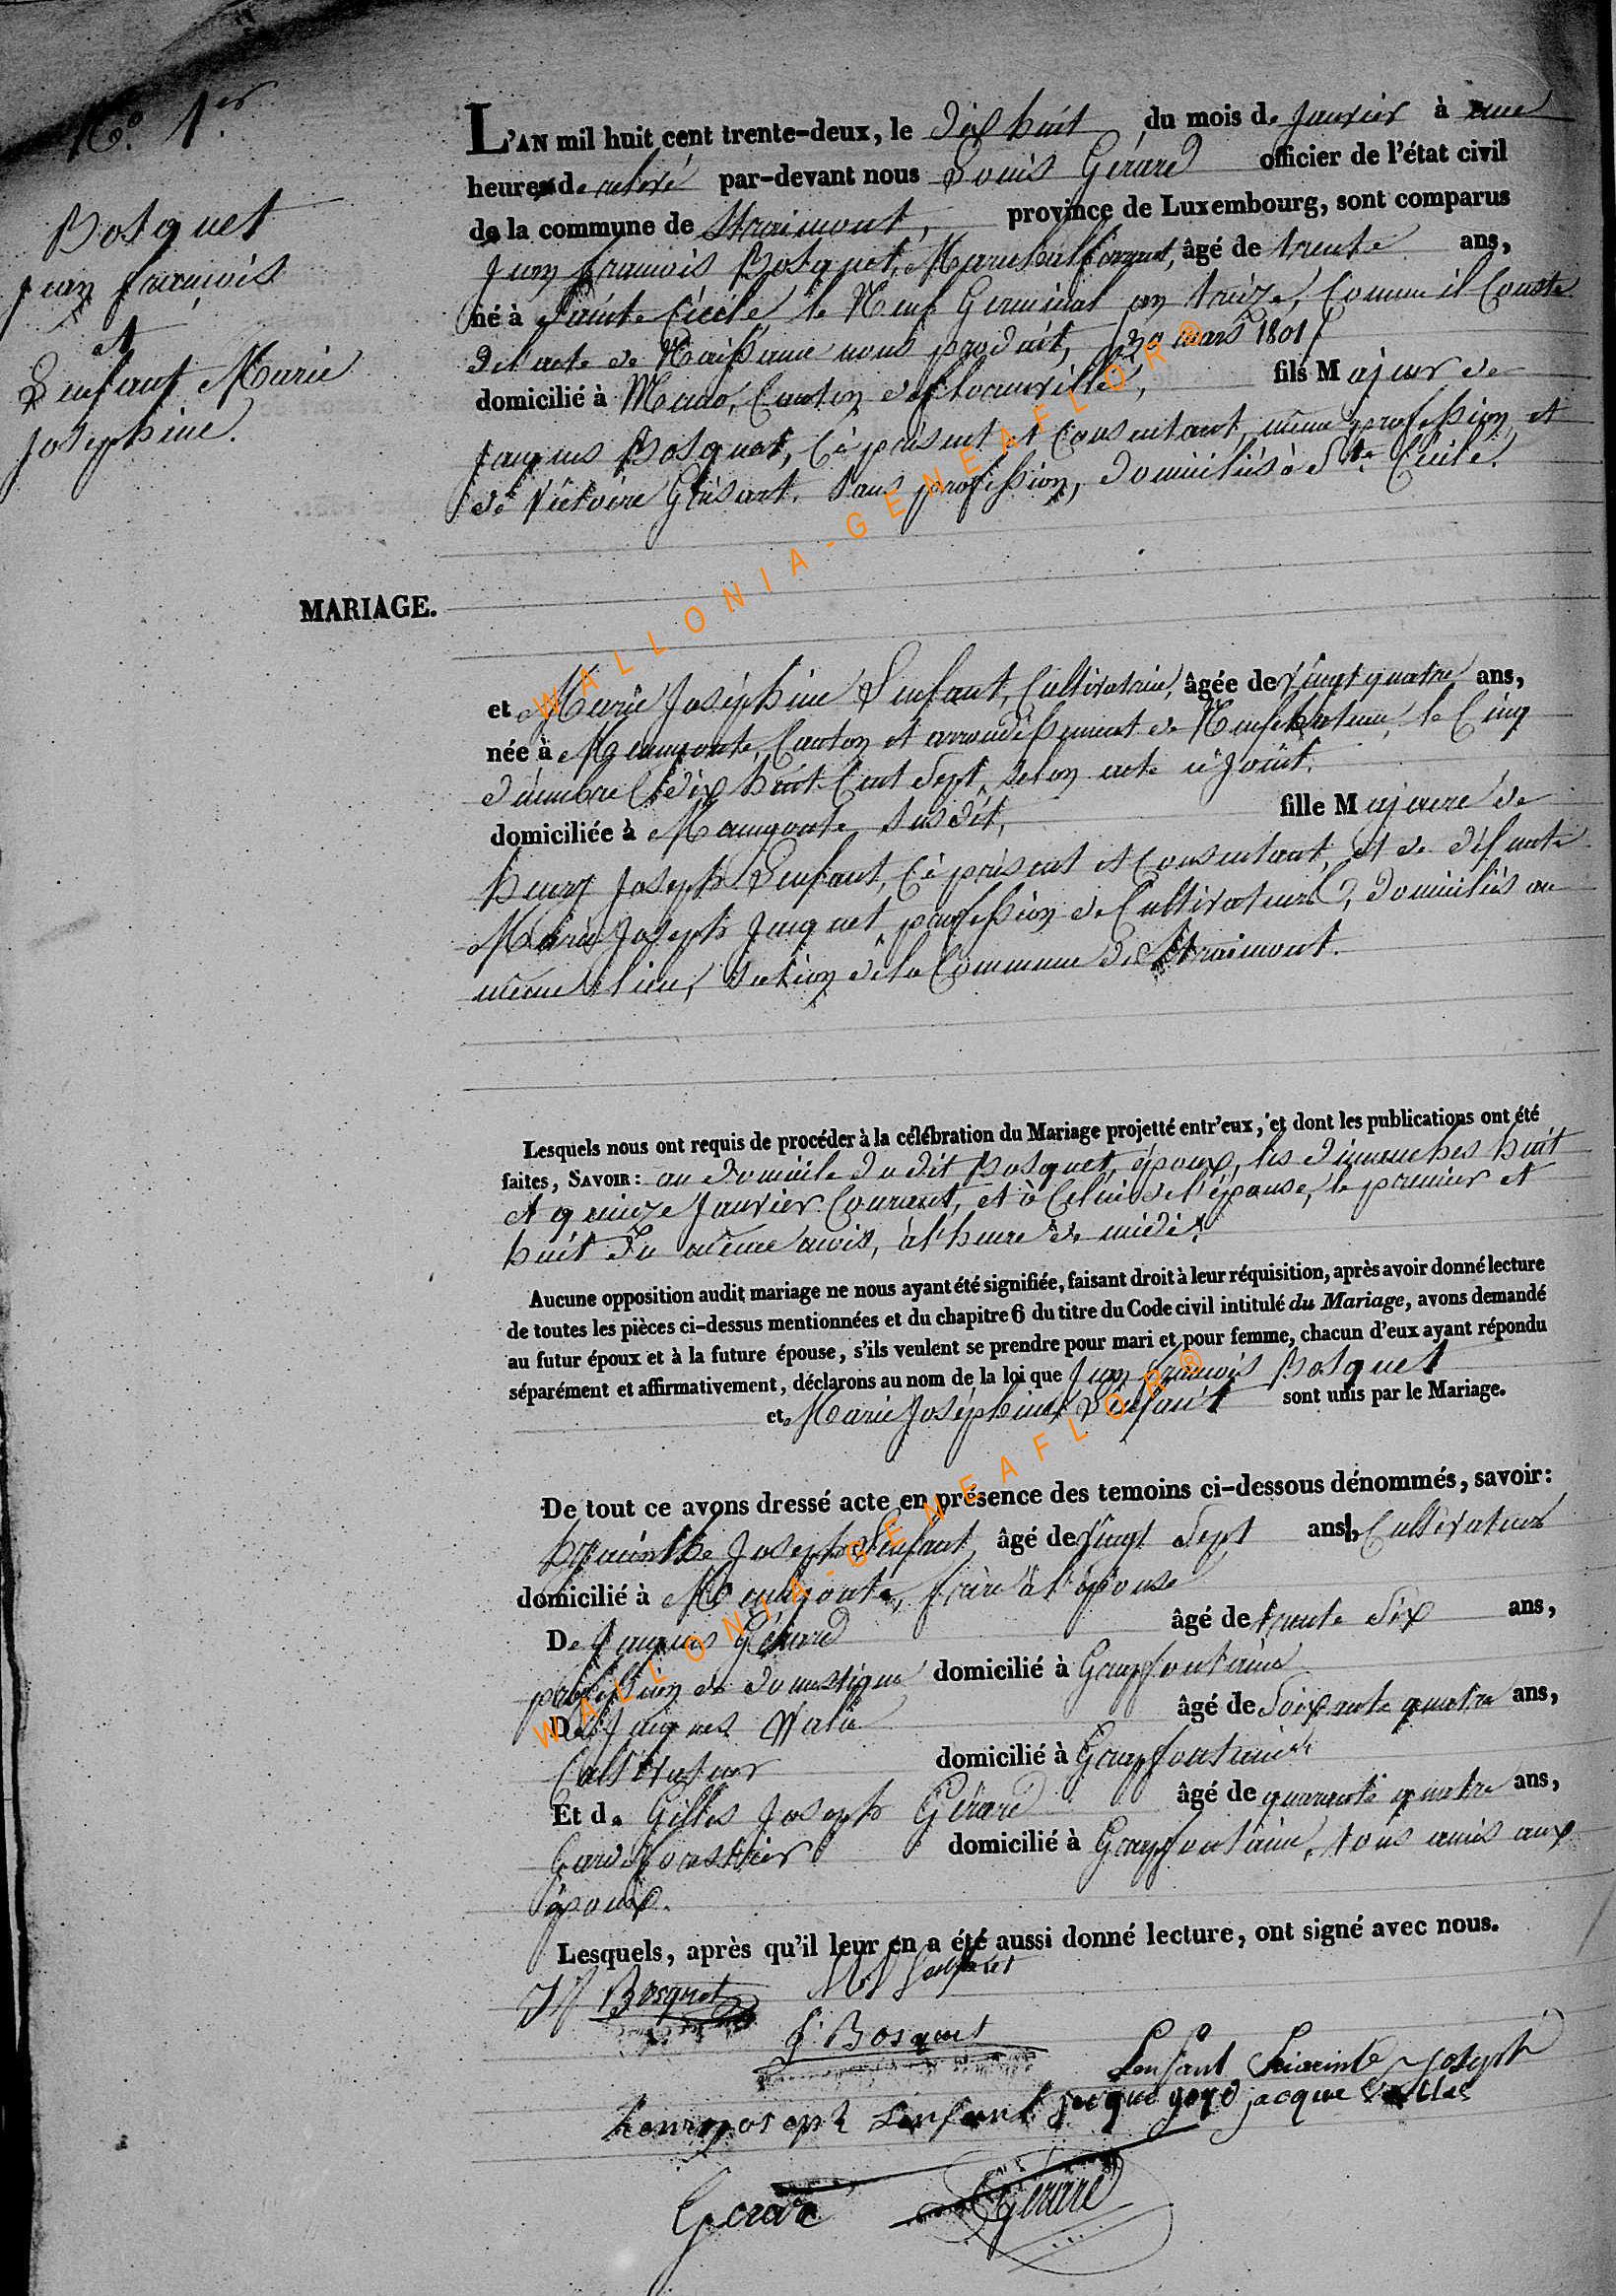 N.º 1.er
Bosquet
Jean françois
et
Lenfant Marie
Josephine.
MARIAGE.
L'AN mil huit cent trente-deux, le dix huit du mois de Janvier à une
heure de relevé par-devant nous Louis Gérard officier de l'état civil
de la commune de Straimont, province de Luxembourg, sont comparus
Jean françois Bosquet, Marechal ferrant, âgé de trente ans,
né à Sainte Cécile, le Neuf Germinal an treize, Comme il Conste
del'acte de Naissance nous produit, mars 1801
domicilié à Canton de florenville, fils Majeur de
Jacques Bosquet, Cé présent et Consentant, même profession, et
de Victoire Grisart, sans profession, domiciliés à Ste Cécile.
et Marie Joséphine Lenfant, Cultivatrice, âgée de Vingt quatre ans,
née à Menugoute, Canton et arrondissement de Neufchateau, le Cinq
décembre dix huit Cent Sept, selon acte ci joint.
domiciliée à Menugoute susdit, fille Majeure de
henry Joseph Lenfant, Cé présent et Consentant, et de défunte
Marie Joseph Jacquet, profession de Cultivateurs, domiciliés au
même lieu, section dela Commune de Straimont.
Lesquels nous ont requis de procéder à la célébration du Mariage projetté entr'eux, et dont les publications ont été
faites, SAVOIR: au domicile dudit Bosquet, époux, les dimanches huit
et quinze Janvier Courant, et à Celui de l'épouse, le premier et
huit du même mois, àl'heure de midi.
Aucune opposition audit mariage ne nous ayant été signifiée, faisant droit à leur réquisition, après avoir donné lecture
de toutes les pièces ci-dessus mentionnées et du chapitre 6 du titre du Code civil intitulé du Mariage, avons demandé
au futur époux et à la future épouse, s'ils veulent se prendre pour mari et pour femme, chacun d'eux ayant répondu
séparément et affirmativement, déclarons au nom de la loi que Jean françois Bosquet
et Marie Joséphine Lenfant sont unis par le Mariage.
De tout ce avons dressé acte en présence des temoins ci-dessous dénommés, savoir:
hyacinthe Joseph Lenfant âgé de Vingt Sept ans, Cultivateur
domicilié à Menugoute, frère àl'épouse
De Jacques Gérard âgé de trente Six ans,
profession de domestique domicilié à Grapfontaine
De Jacques Watlé âgé de Soixante quatre ans,
Cultivateur domicilié à Grapfontaine
Et de Gilles Joseph Gérard âgé de quarante quatre ans,
Garde forestier domicilié à Grapfontaine, tous amis aux
époux.
Lesquels, après qu'il leur en a été aussi donné lecture, ont signé avec nous.
JF Bosquet MJ Lenfant
J Bosquet
Lenfant hiacinte Joseph
henry joseph Lenfant jacque jacque
Gerard Gérard
WALLONIA-GENEAFLOR®
WALLONIA-GENEAFLOR®